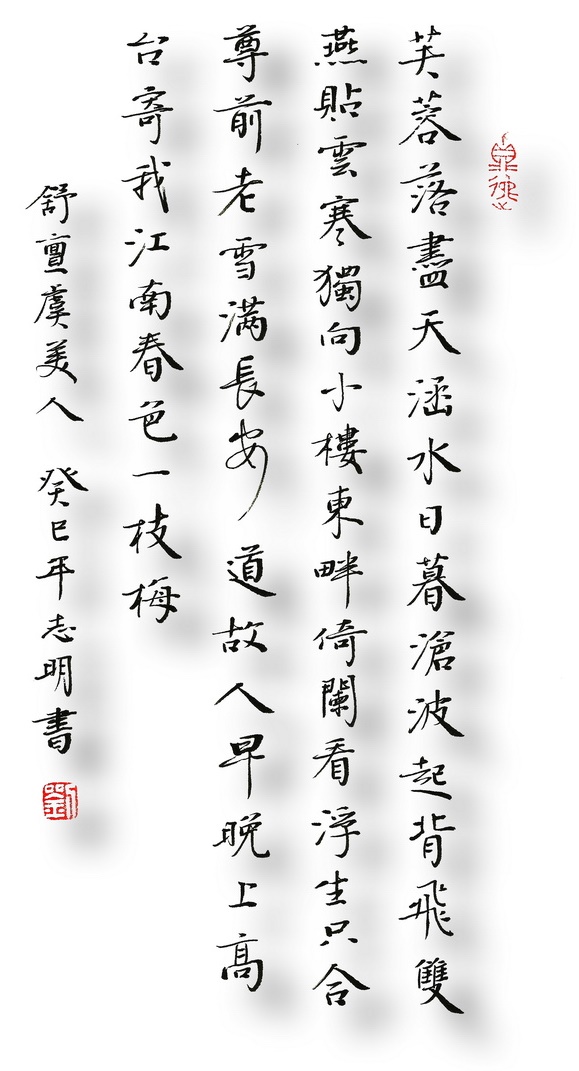 芙蓉落盡天涵水日暮滄波起背飛雙
燕貼雲寒獨向小樓東畔倚闌看浮生只合
尊前老雪满長安道故人早晚上高
台寄我江南春色一枝梅
舒亶虞美人 癸巳年志明書
劉